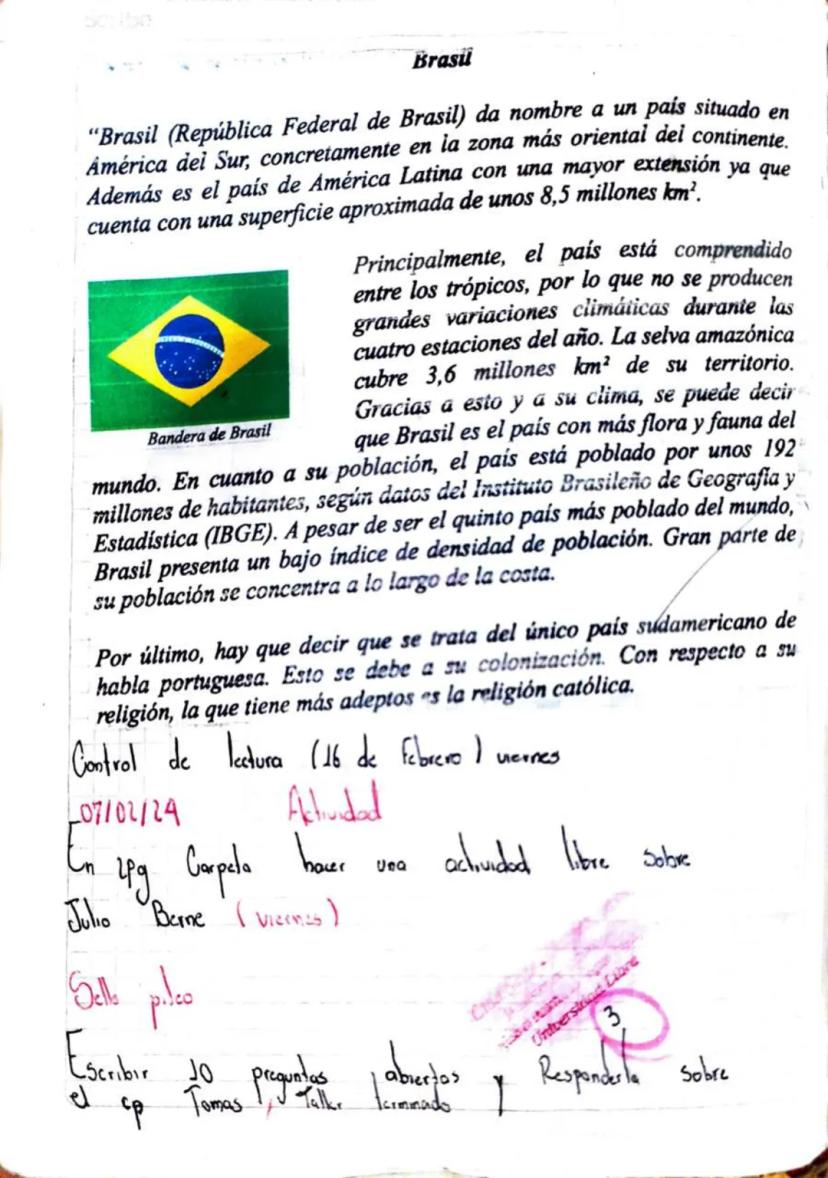 Brasil
“Brasil (República Federal de Brasil) da nombre a un país situado en
América del Sur, concretamente en la zona más oriental del continente.
Además es el país de América Latina con una mayor extensión ya que
cuenta con una superficie aproximada de unos 8,5 millones km².
Principalmente, el país está comprendido
entre los trópicos, por lo que no se producen
grandes variaciones climáticas durante las
cuatro estaciones del año. La selva amazónica
cubre 3,6 millones km² de su territorio.
Gracias a esto y a su clima, se puede decir
que Brasil es el país con más flora y fauna del
Bandera de Brasil
mundo. En cuanto a su población, el país está poblado por unos 192
millones de habitantes, según datos del Instituto Brasileño de Geografía y
Estadística (IBGE). A pesar de ser el quinto país más poblado del mundo,
Brasil presenta un bajo índice de densidad de población. Gran parte de
su población se concentra a lo largo de la costa.
Por último, hay que decir que se trata del único país sudamericano de
habla portuguesa. Esto se debe a su colonización. Con respecto a su
religión, la que tiene más adeptos es la religión católica.
Control de lectura (16 de febrero) viernes
07/02/24 Actividad
En 1pg Carpeta hacer una actividad libre sobre
Julio Berne (viernes)
Sello
Universidad Libre
3
Escribir 10 preguntas abiertas y Responderla sobre
el cp Tomas, Taller terminado